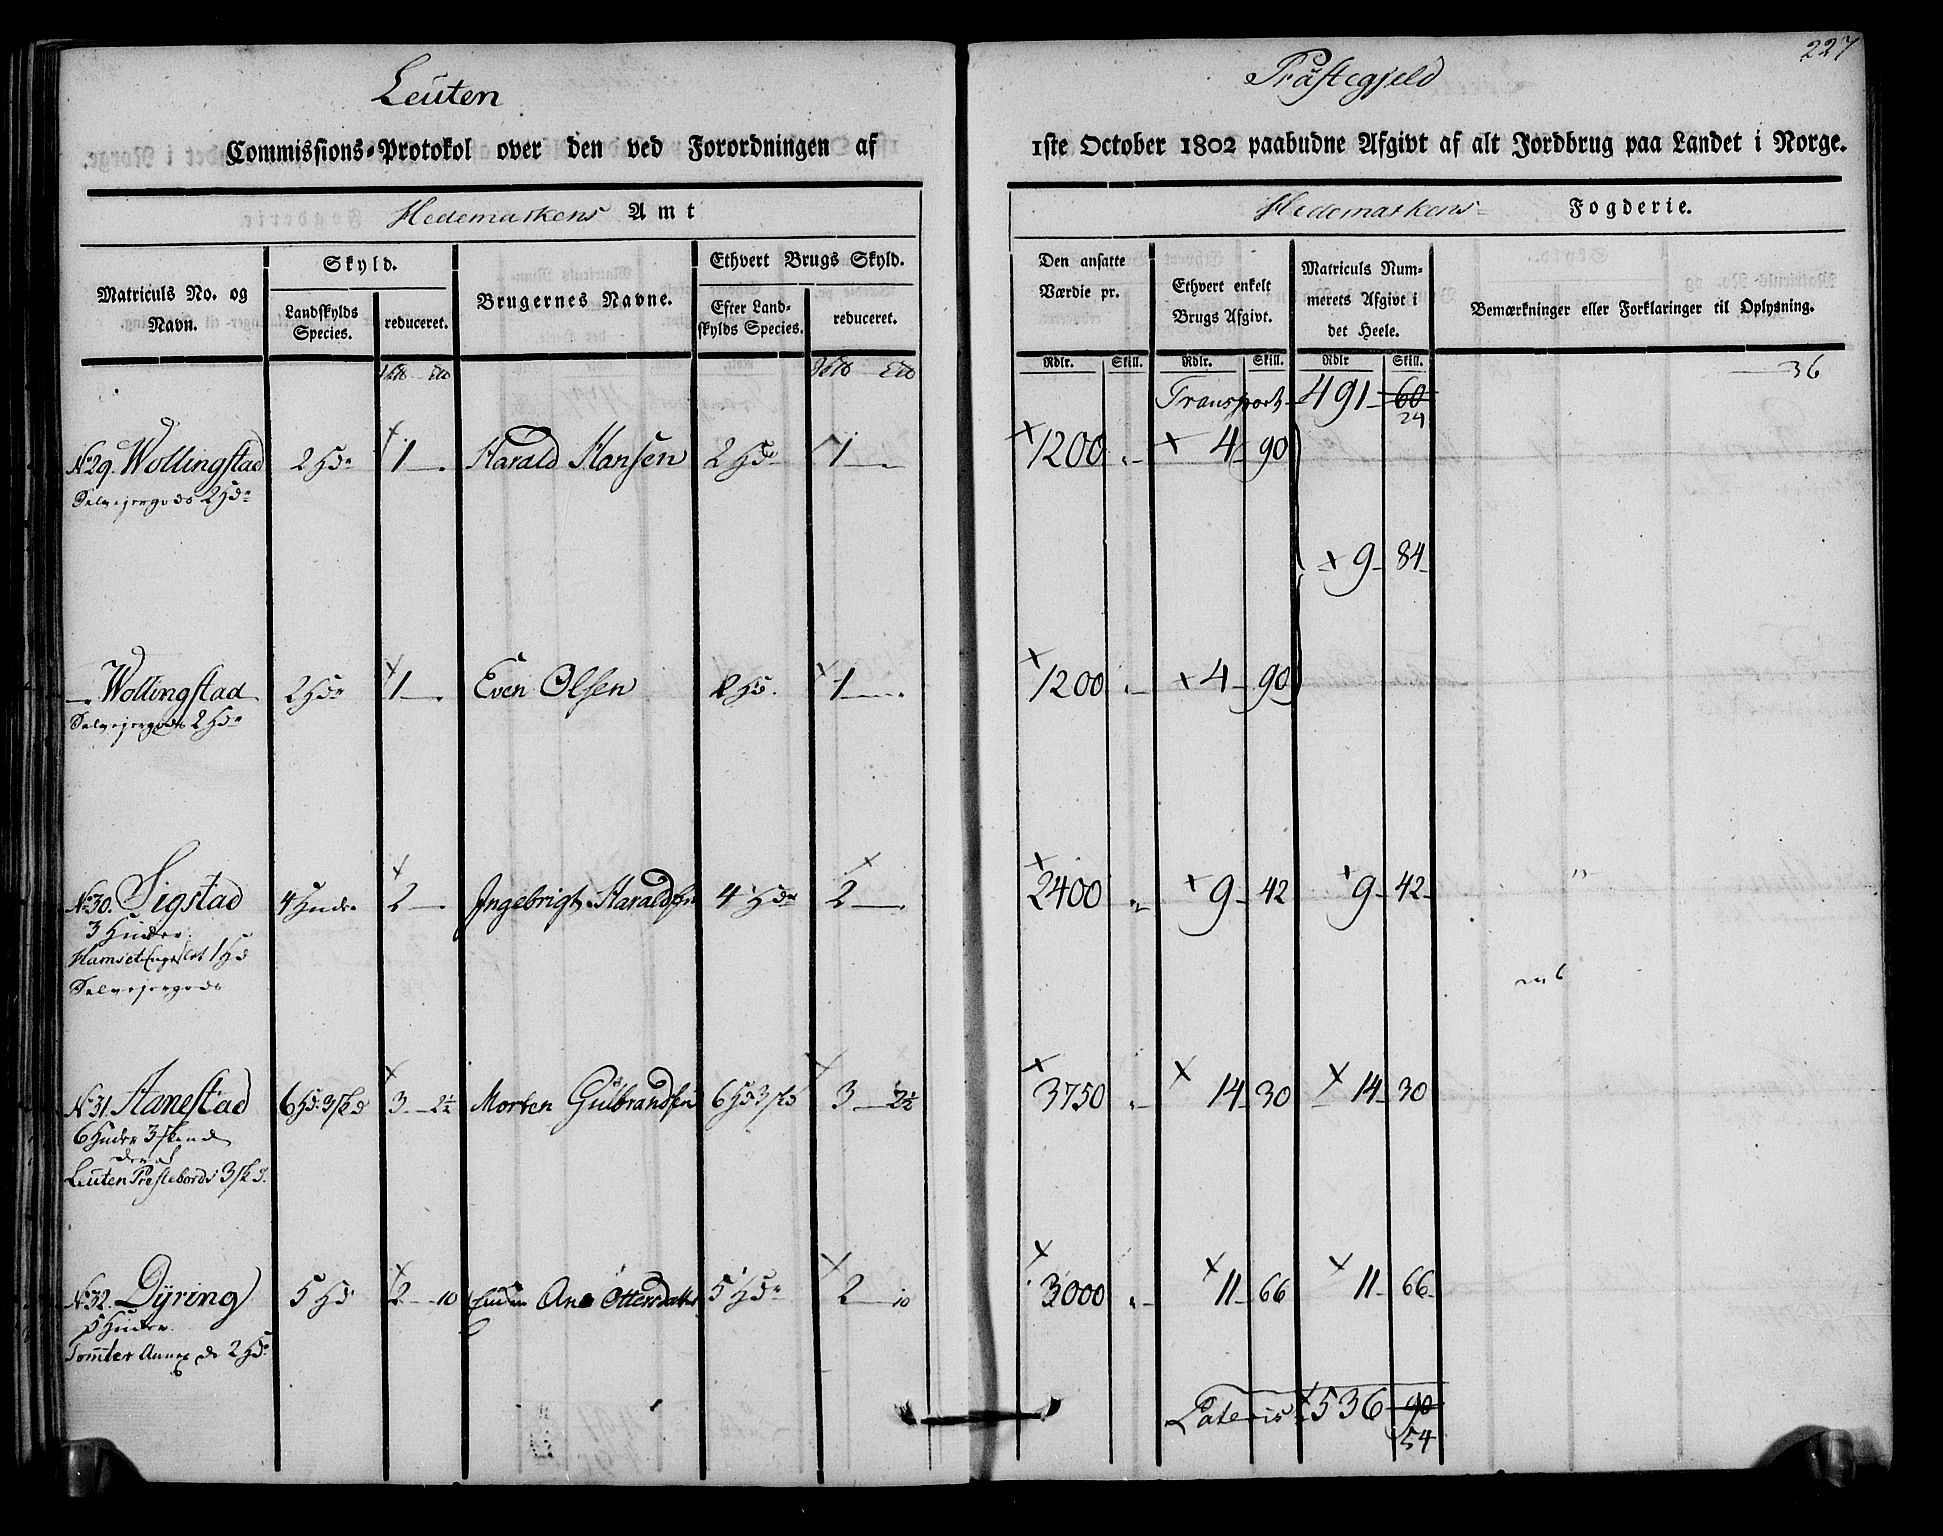 227
Leuten Præstegjeld
Commissions-Protokol over den ved Forordningen af 1ste October 1802 paabudne Afgivt af alt Jordbrug paa Landet i Norge.
Hedemarkens Amt Hedemarkens Fogderie.
Matriculs No. og Navn.
Skyld.
Landskylds Species.
reduceret.
Brugernes Navne.
Ethvert Brugs Skyld.
Efter Landskylds Species.
reduceret.
Den ansatte Værdie pr.
Ethvert enkelt Brugs Afgivt.
Matriculs Nummerets Afgivt i det Heele.
Bemærkninger eller Forklaringer til Oplysning.
Rdlr. Skill. Rdlr. Skill. Rdlr Skill.
36
Transport 491 60
24
No 29. Wollingstad 2 Hdr 1 Harald Hansen 2 Hdr 1 1200 4 90
Selvejergods 2 Hdr
9 84
Wollingstad 2 Hdr 1 Even Olsen 2 Hd. 1 1200 4 90
Selvejergods 2 Hdr
No 30. Sigstad 4 Huder 2 Ingebrigt Haraldsen 4 Hdr 2 2400 9 42 9 42
3 Huder
1 Hd
Selvejergods
No 31. Aanestad 6 Hd. 3 skd 3 2½ Morten Gulbrandsen 6 Hd 3 skd 3 2½ 3750 14 30 14 30
6 Huder 3 skind
deraf
Leuten Prestebord 3 skd.
No 32. Dÿring 5 Hd 2 10 Enken Ane Ottersdatter 5 Hdr 2 10 3000 11 66 11 66
5 Huder
Tomter Annex do 2 Hdr
Lateris 536 90
54